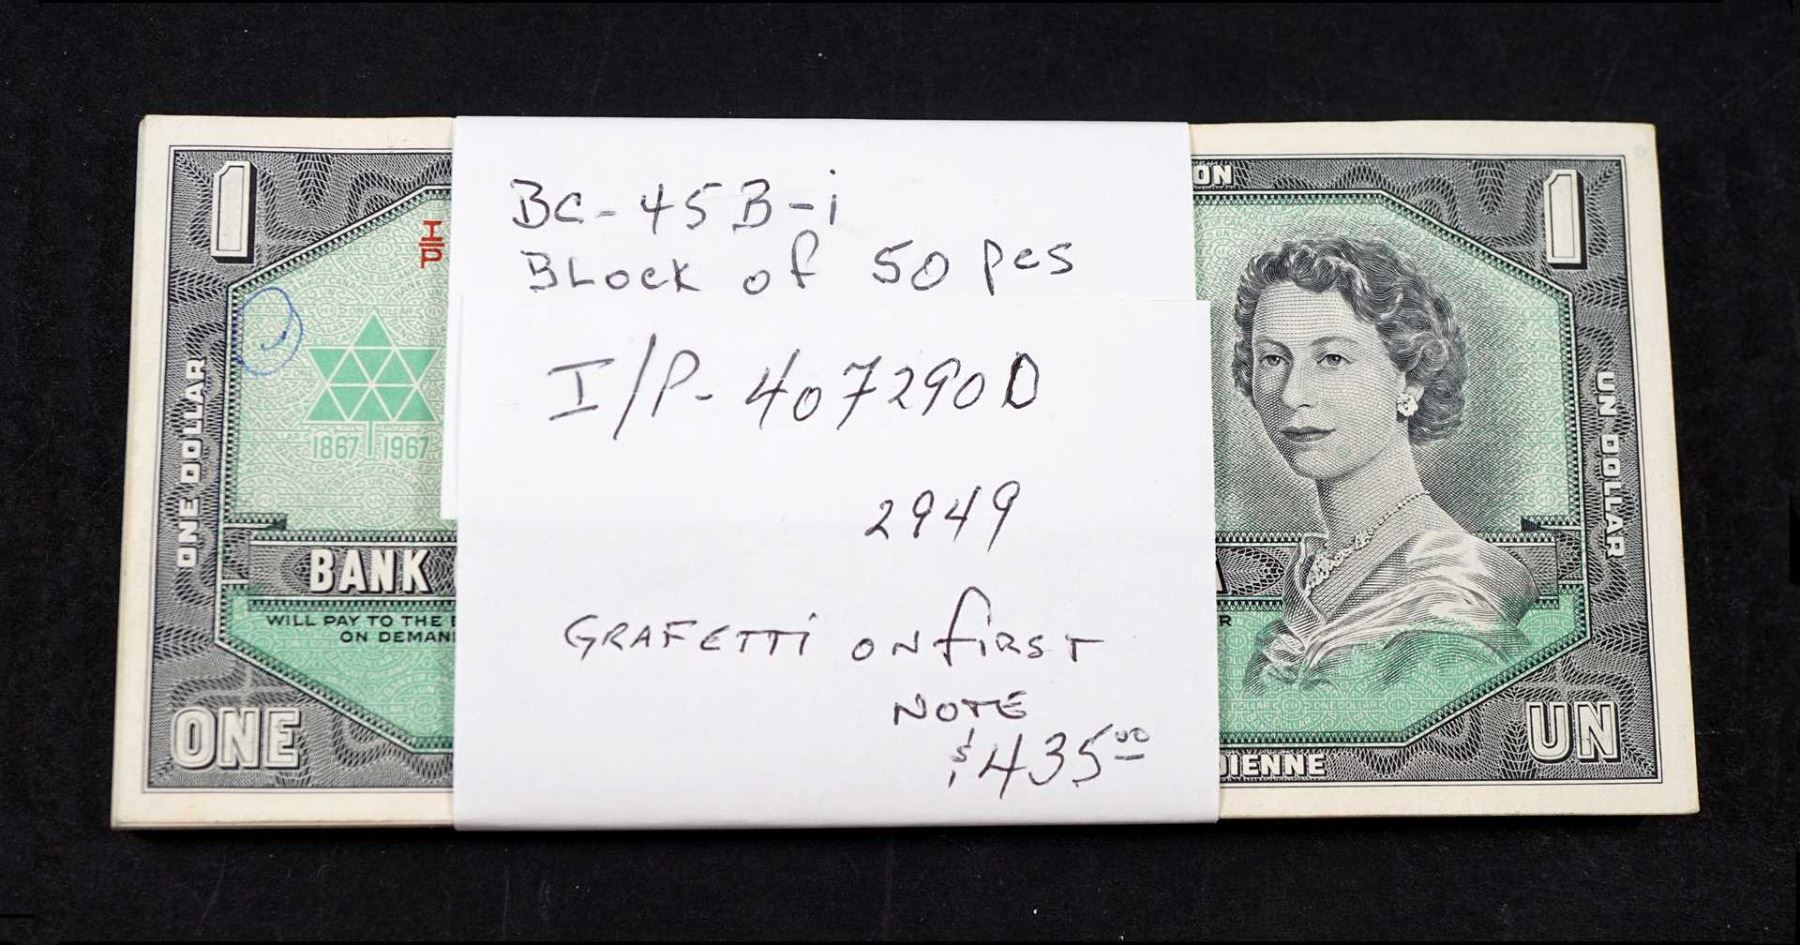 1
ON
1
I/P
BC-45B-i
BLock of 50 pcs
I/P-4072900
2949
GRAFETTi ON first
NOTE
$435.00
ONE DOLLAR
1867 1967
UN DOLLAR
BANK
A
WILL PAY TO THE
ON DEMAN
R
ONE
UN
DIENNE